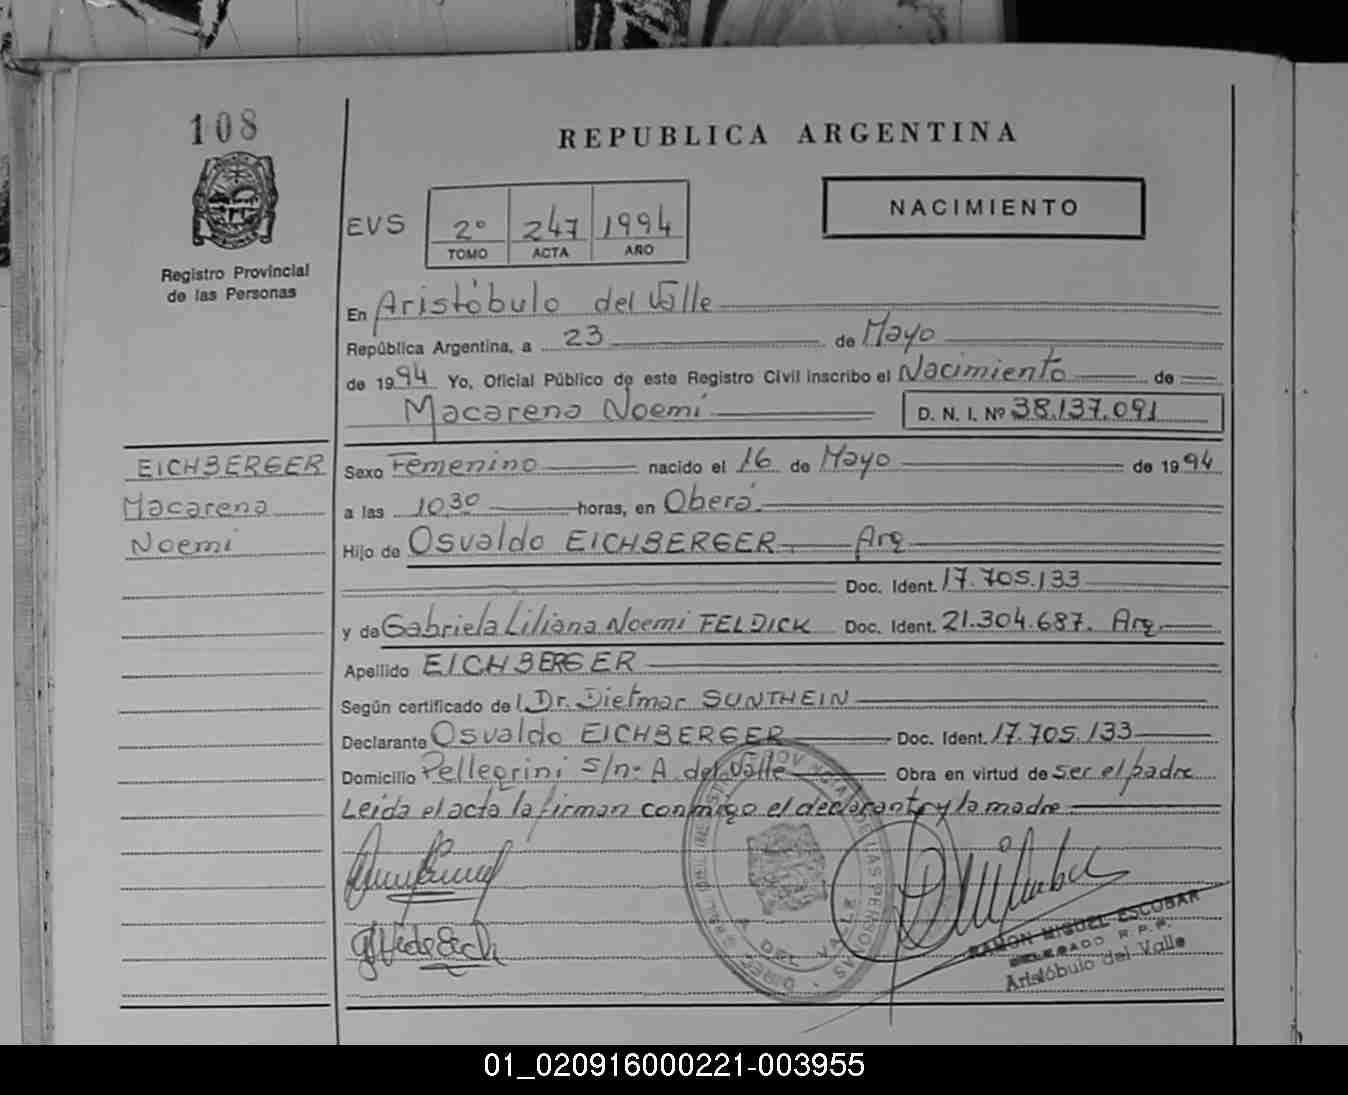 108
REPUBLICA ARGENTINA
NACIMIENTO
EVS
2º 247 1994
TOMO ACTA AÑO
Registro Provincial
de las Personas
En Aristóbulo del Valle
República Argentina, a 23 de Mayo
de 1994 Yo, Oficial Público de este Registro Civil inscribo el Nacimiento de
Macarena Noemi D. N. I. Nº 38.137.091
EICHBERGER
Macarena
Noemi
Sexo Femenino nacido el 16 de Mayo de 1994
a las 10,30 horas, en Oberá.
Hijo de Osvaldo EICHBERGER Arg
Doc. Ident. 17.705.133
y de Gabriela Liliana Noemi FELDICK Doc. Ident. 21.304.687. Arg.
Apellido EICHBERGER
Según certificado de l Dr. Dietmar SUNTHEIN
Declarante Osvaldo EICHBERGER Doc. Ident. 17.705.133
Domicilio Pellegrini s/n- A. del Valle Obra en virtud de ser el padre
Leida el acta la firman conmigo el declarante y la madre
A. DEL VALLE
RAMON MIGUEL ESCOBAR
DELEGADO R.P.P.
Aristóbulo del Valle
01_020916000221-003955